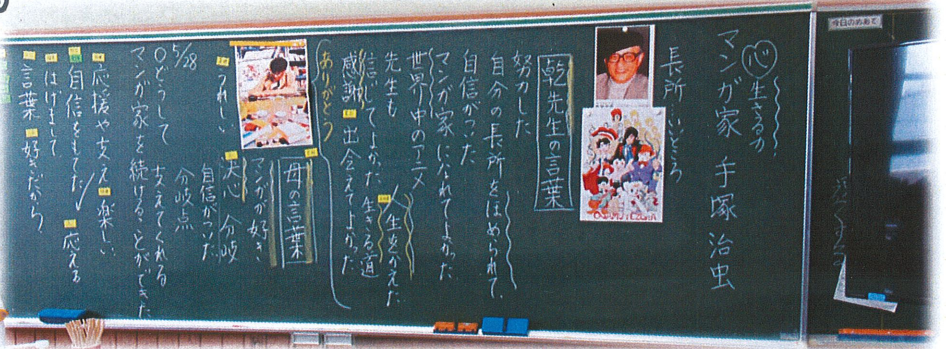 今日のめあて
心 生きる力
マンガ家 手塚治虫
長所 いいところ
乾先生の言葉
努力した
自分の長所をほめられて、
自信がついた
マンガ家になれてよかった
世界中のアニメ
先生も 人生をかえた
信じてよかった 生きる道
感謝 出会えてよかった
ありがとう
母の言葉
マンガが好き
決心 分岐
自信がついた
分岐点
うれしい
5/28
○どうして 支えてくれる
マンガ家を続けることができた
応援や支え 楽しい
自信をもてた 応える
はげまして
言葉 好きだから